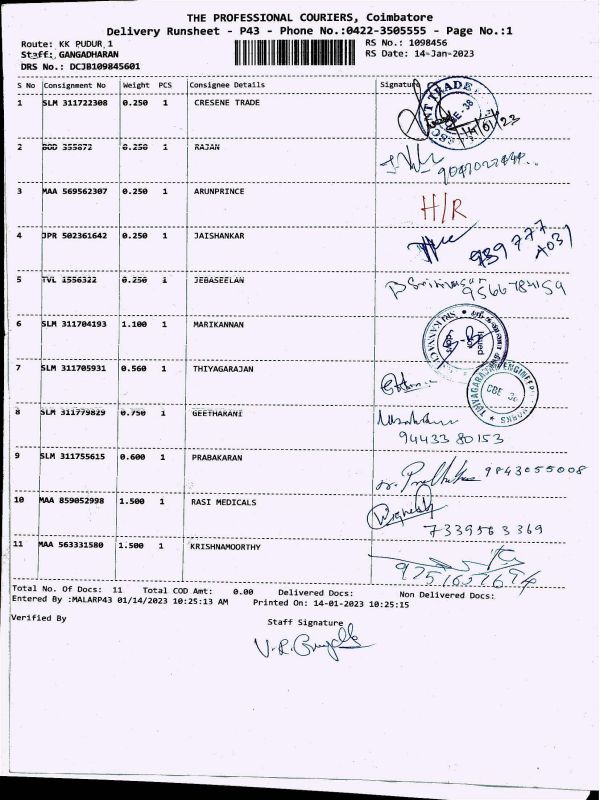 THE PROFESSIONAL COURIERS, Coimbatore
Delivery Runsheet - P43 - Phone No.:0422-3505555 - Page No.:1
Route: KK PUDUR 1 RS No.: 1098456
Staff: GANGADHARAN RS Date: 14-Jan-2023
DRS No.: DCJB109845601
S No Consignment No Weight PCS Consignee Details Signature
1 SLM 311722308 0.250 1 CRESENE TRADE
2 BOD 355872 0.250 1 RAJAN
3 MAA 569562307 0.250 1 ARUNPRINCE H/R
4 JPR 502361642 0.250 1 JAISHANKAR
5 TVL 1556322 0.250 1 JEBASEELAN
6 SLM 311704193 1.100 1 MARIKANNAN
7 SLM 311705931 0.560 1 THIYAGARAJAN
8 SLM 311779829 0.750 1 GEETHARANI
94433 80153
9 SLM 311755615 0.600 1 PRABAKARAN 9843055008
10 MAA 859052998 1.500 1 RASI MEDICALS
7339563369
11 MAA 563331580 1.500 1 KRISHNAMOORTHY
Total No. Of Docs: 11 Total COD Amt: 0.00 Delivered Docs: Non Delivered Docs:
Entered By :MALARP43 01/14/2023 10:25:13 AM Printed On: 14-01-2023 10:25:15
Verified By Staff Signature